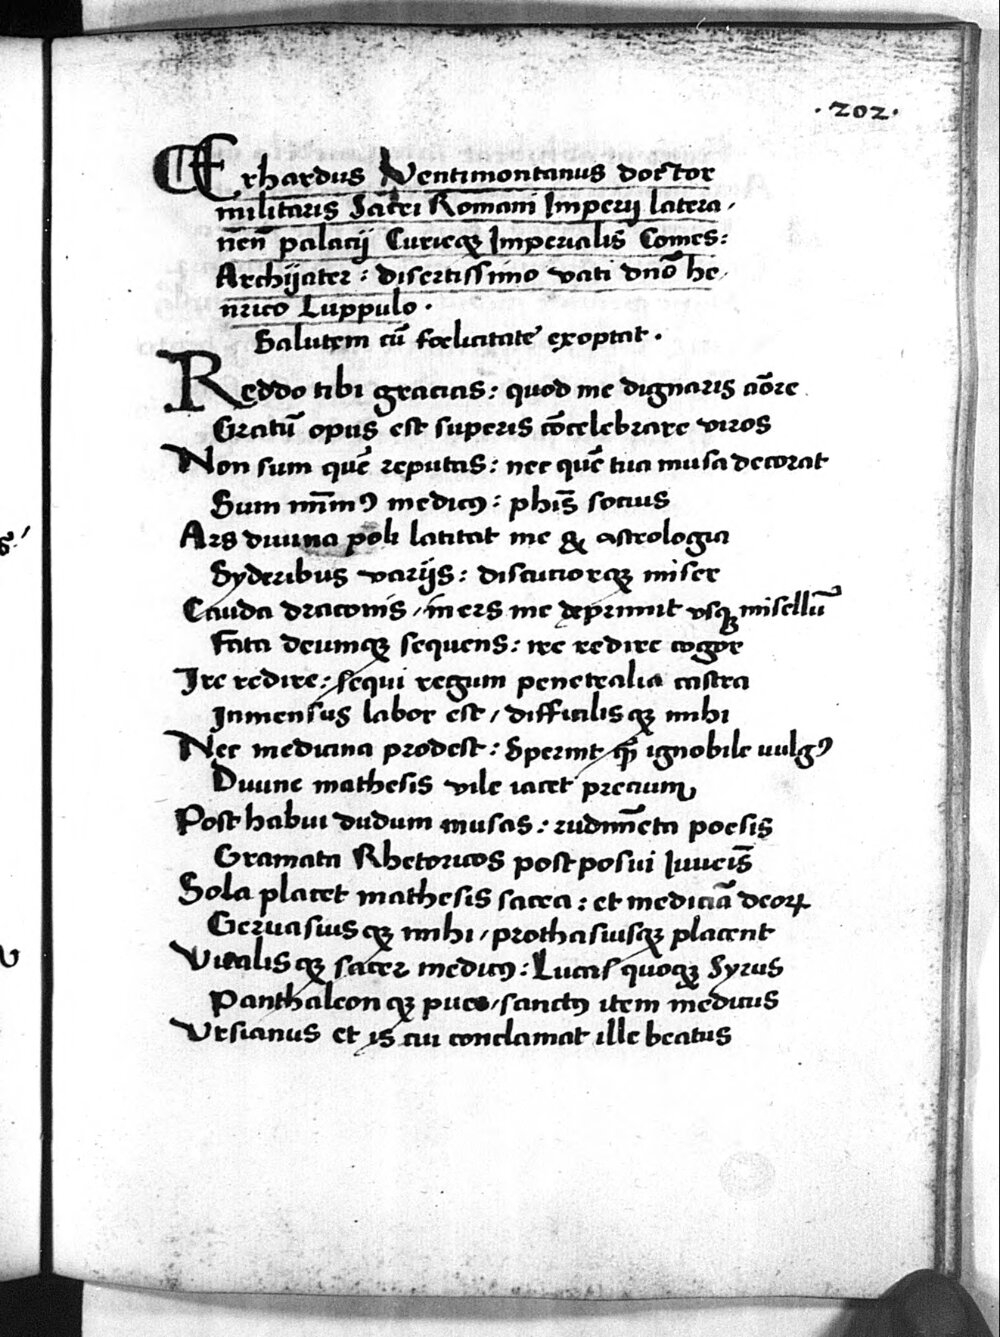 ·202·
Erhardus Ventimontanus doctor
militaris Sacri Romani Imperij latera-
nen̄ palacij Curieq́ꝫ Imperialis Comes:
Archijater: disertissimo vati dnō he-
nrico Luppulo.
Salutem cū foelicitate exoptat.
Reddo tibi gracias: quod me dignaris aōre
Gratū opus est superis cōcelebrare viros
Non sum quē reputas: nec quē tua musa decorat
Sum mīmꝰ medicꝰ: phīs socius
Ars diuina poli latitat me & astrologia
Syderibus varijs: discutiorqꝫ miser
Cauda draconis, iners me deprimit vsqꝫ misellū
Fata deumqꝫ sequens: ire redire cogor
Ire redire: sequi regum penetralia castra
Inmensus labor est, difficilisqꝫ mihi
Nec medicina prodest: Spernit qm̄ ignobile uulgꝰ
Diuine mathesis vile iacet precium
Post habui dudum musas: rudimēta poesis
Gramata Rhetoricos postposui Iuueīs
Sola placet mathesis sacra: et mediciā deoꝝ
Geruasiusqꝫ mihi, prothasiusqꝫ placent
Vitalisqꝫ sacer medicꝰ: Lucas quoqꝫ Syrus
Panthaleonqꝫ puer, sanctꝰ item medicus
Vrsianus et is cui conclamat ille beatus